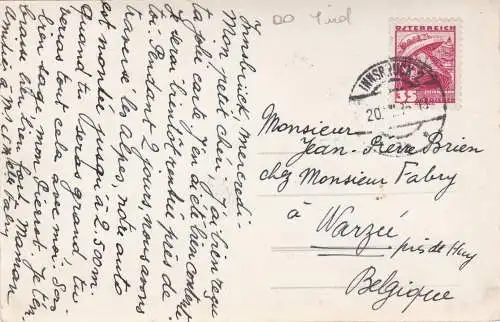 Innsbruck, mercredi
Mon petit chéri, j'ai bien reçu
ta jolie carte. J'en ai été bien contente
Je serai bientôt rentrée près de
toi. Pendant 2 jours, nous avons
traversé les Alpes, notre auto
est montée jusqu'à 2.500m.
Quand tu seras grand tu
verras tout cela avec moi. Sois
bien sage, mon Pierrot. Je t'em-
brasse bien bien fort. Maman
Amitiés à M. et Mme Fabry
ÖSTERREICH
35
INNSBRUCK 2
20.
Monsieur
Jean-Pierre Brien
chez Monsieur Fabry
à Warzée
près de Huy
Belgique